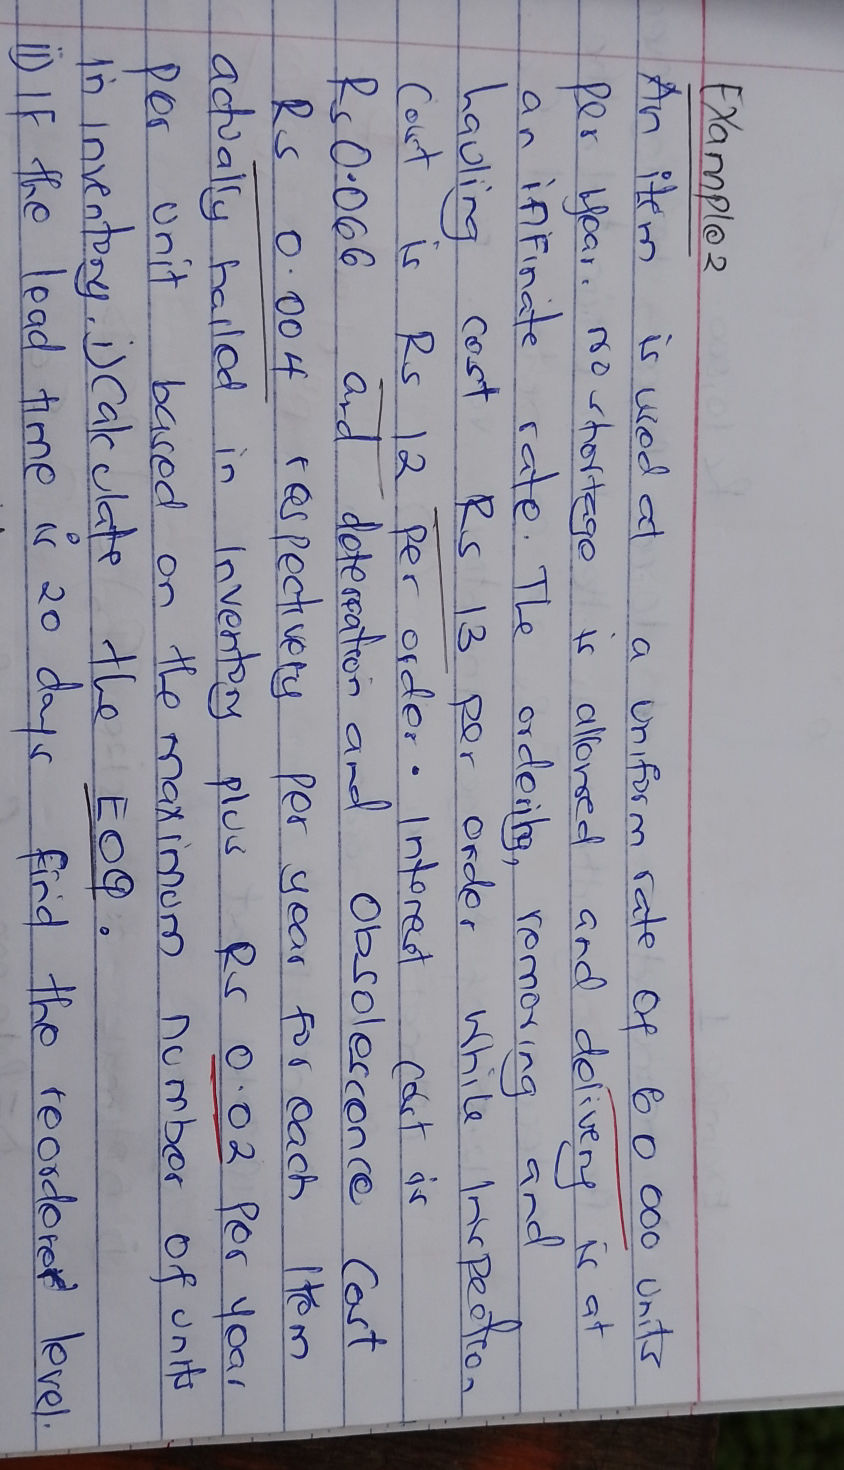 Example 2
An item is used at a uniform rate of 60 000 units
per year. no shortage is allowed and delivery is at
an infinate rate. The ordering, removing and
hauling cost Rs 13 per order while Inspection
Cost is Rs 12 per order. Interest cost is
Rs 0.066 and deteration and Obsolescence Cost
Rs 0.004 respectively per year for each Item
actually hailed in Inventory plus Rs 0.02 per year
per unit based on the maximum number of units
in Inventory. i) Calculate the EOQ.
ii) IF the lead time is 20 days find the reorderer level.